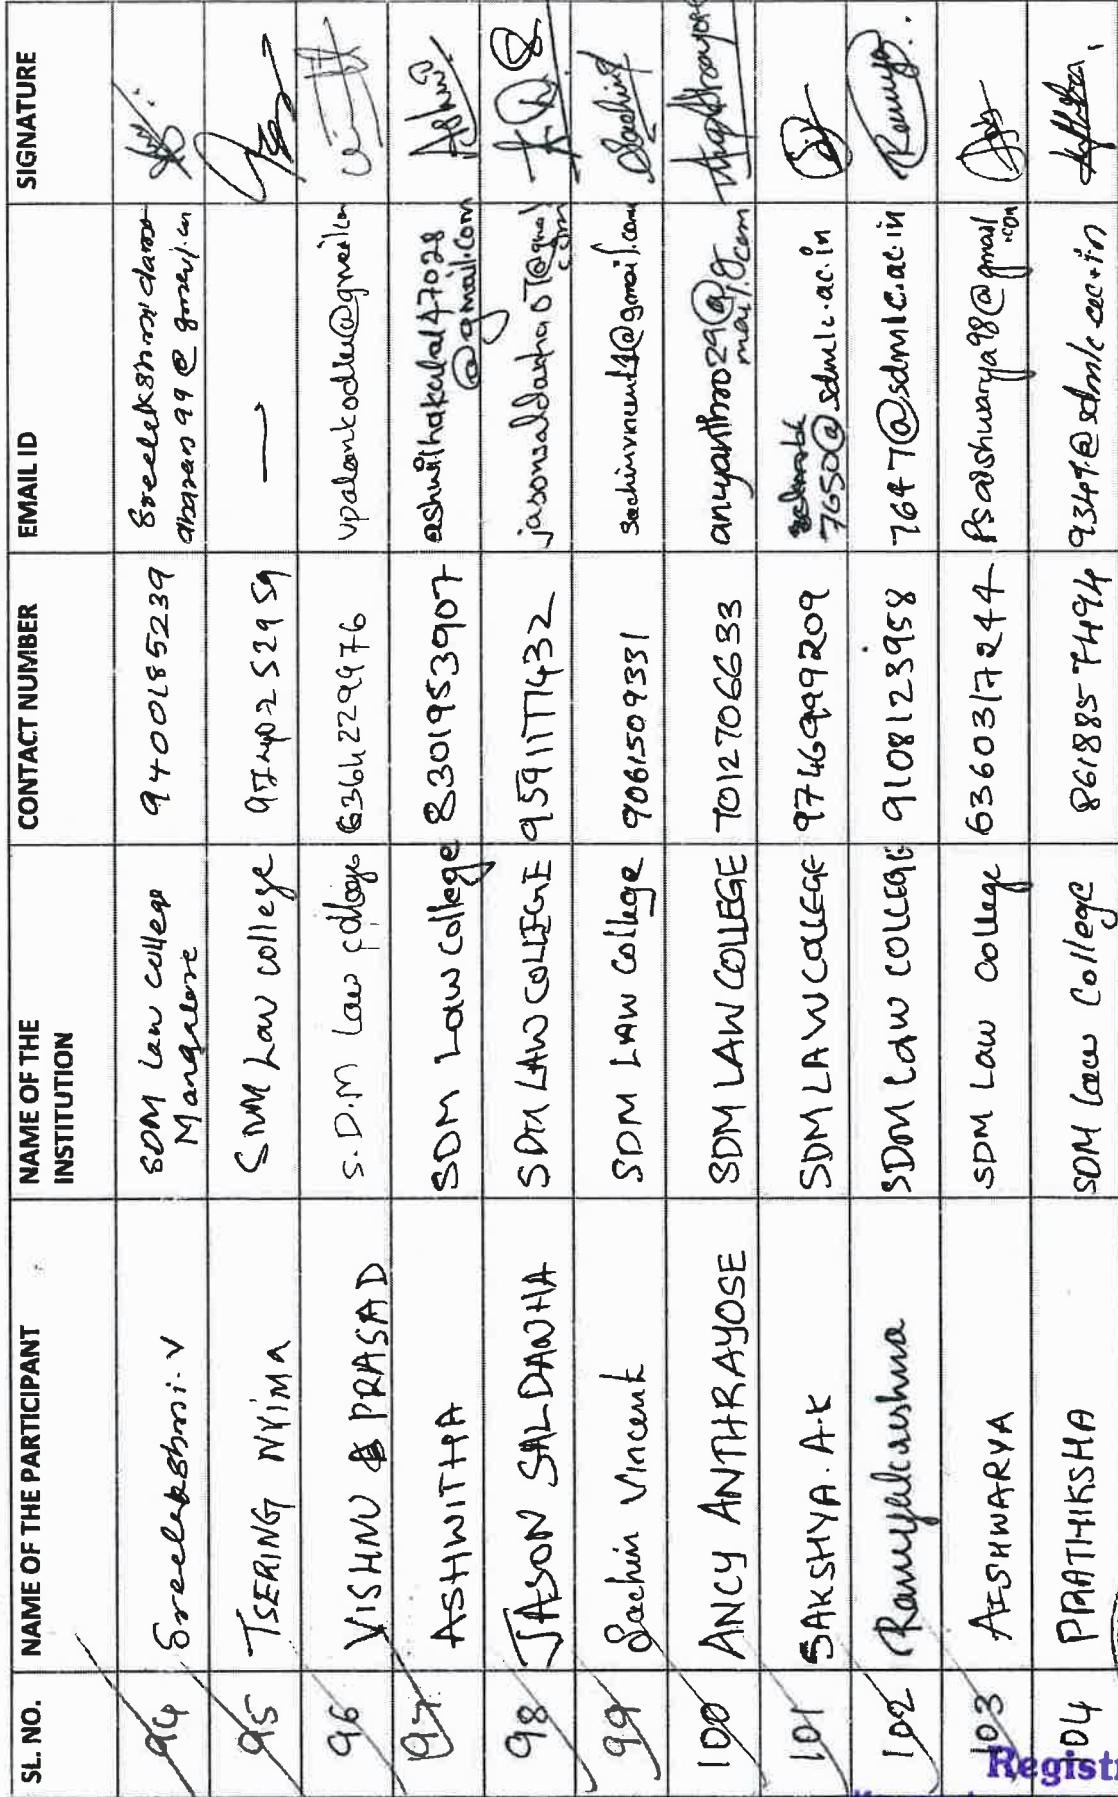 SL. NO. NAME OF THE PARTICIPANT NAME OF THE INSTITUTION CONTACT NUMBER EMAIL ID SIGNATURE
94 Sreelakshmi.V SDM Law College Mangalore 9400185239
95 TSERING NYIMA SDM Law college —
96 VISHNU PRASAD S.D.M Law college 6364229976
97 ASHWITHA SDM Law College 8301953907 @gmail.com Ashwi
98 JASON SALDANHA SDM LAW COLLEGE 9591177432 @gmail.com
99 Sachin Vincent SDM LAW College 9061509331 Sachin
100 ANCY ANTHRAYOSE SDM LAW COLLEGE 7012706633 ancyanthro29@gmail.com
101 SAKSHYA.A.K SDM LAW COLLEGE 9746999209 7650@sdmlc.ac.in
102 Ramyakrishna SDM Law COLLEGE 9108123958 7647@sdmlc.ac.in Ramya..
103 AISHWARYA SDM Law College 6360317244 Psaishwarya98@gmail.com
104 PRATHIKSHA SDM Law College 8618857494
Regist